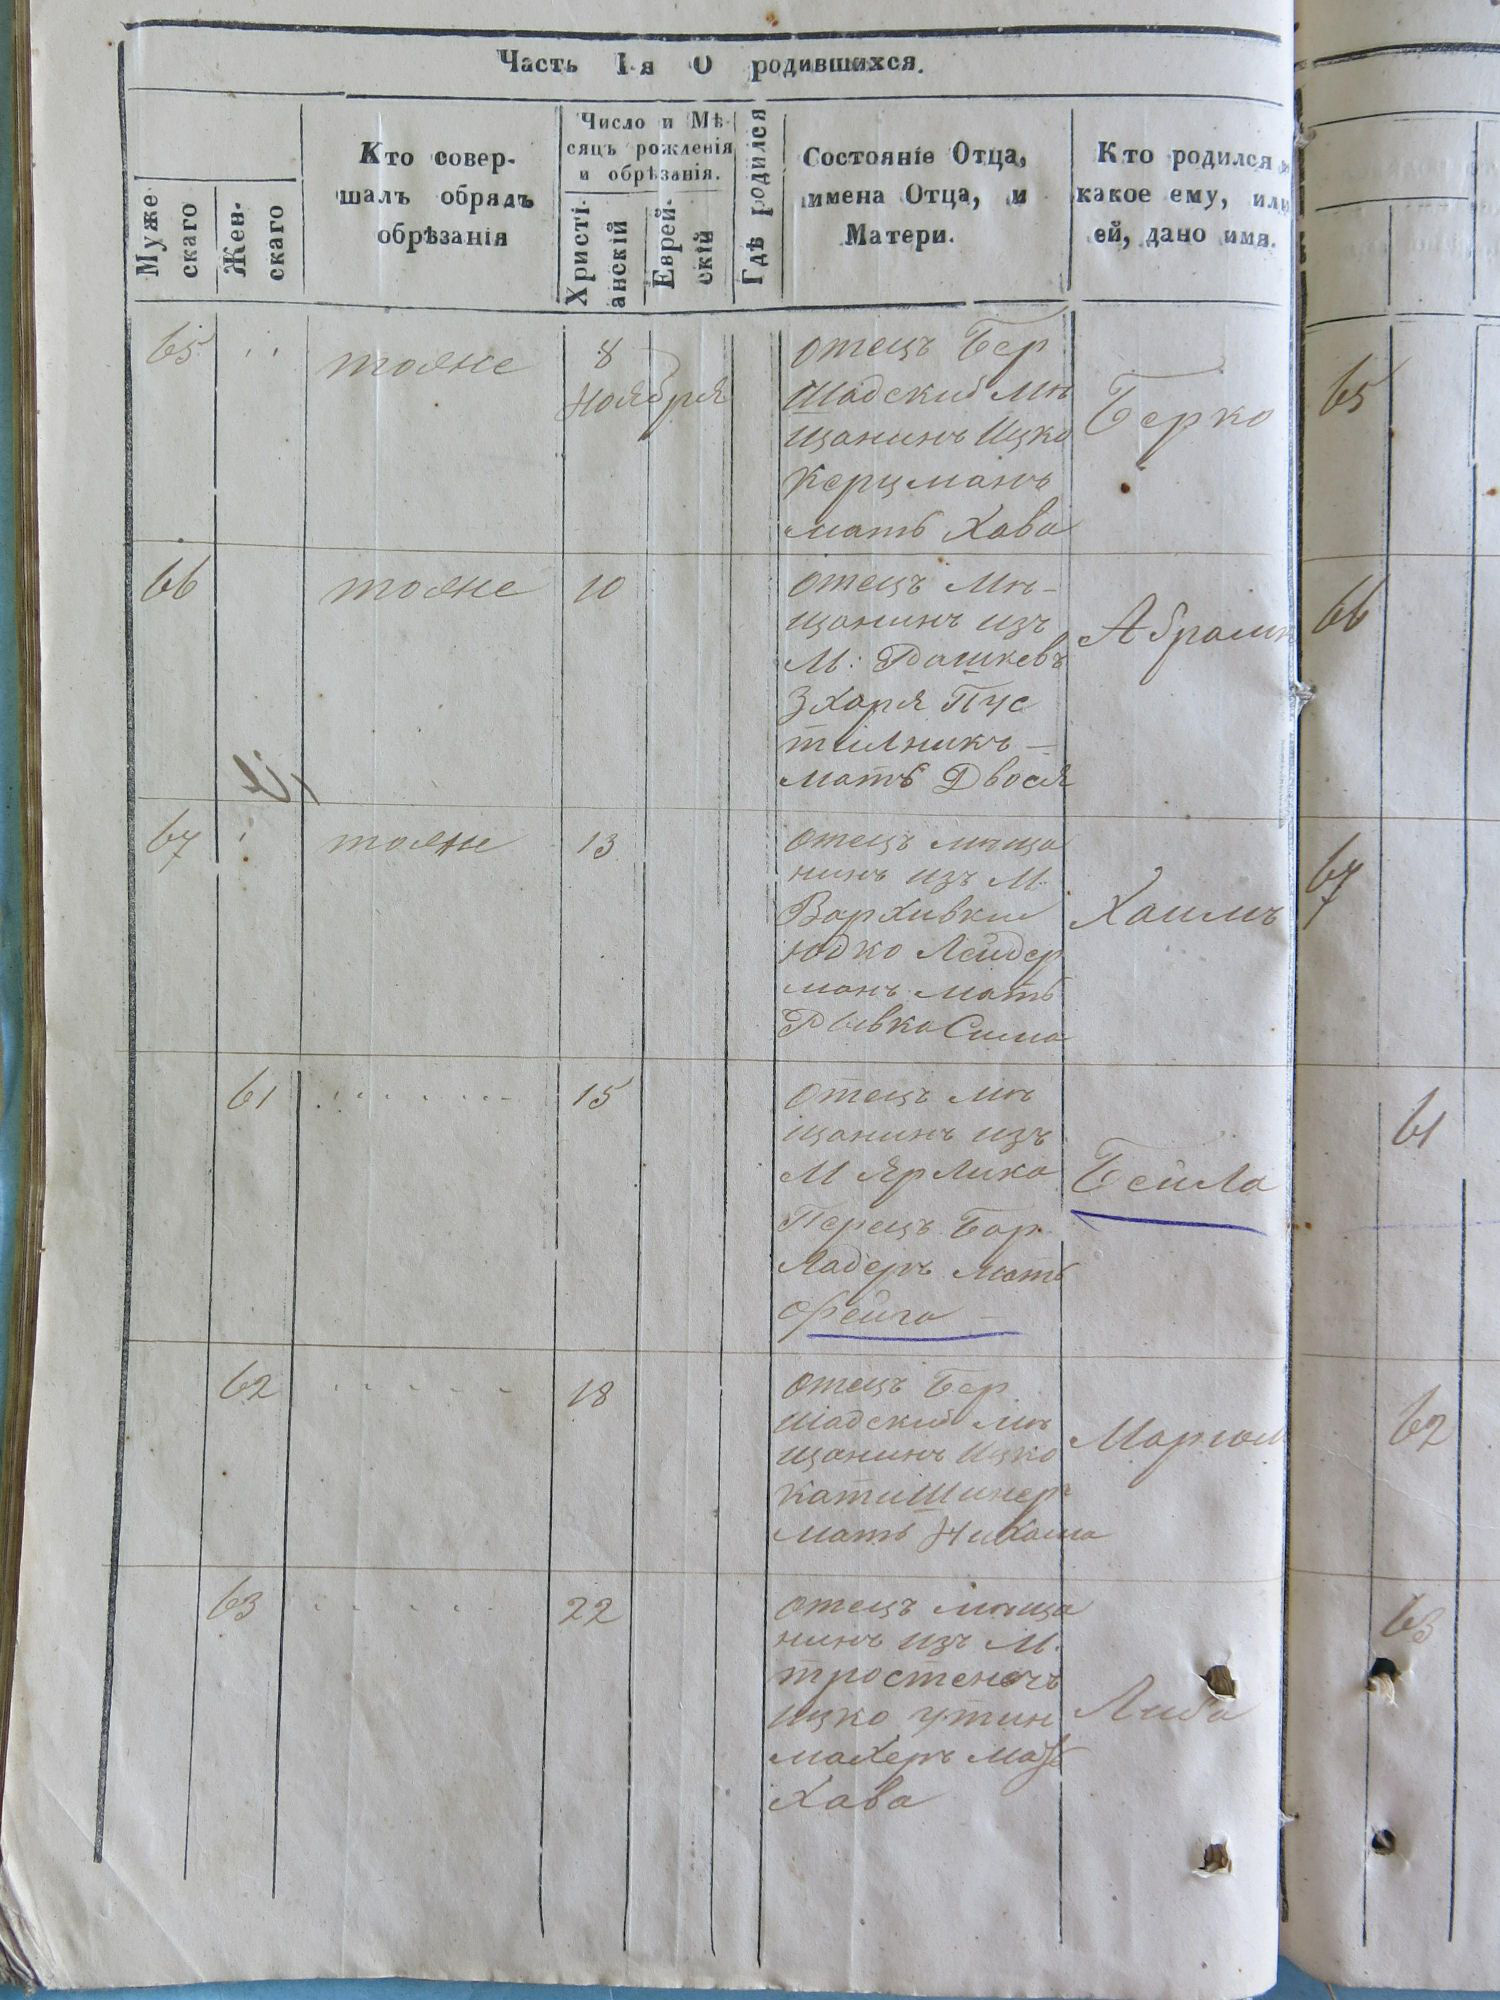 Часть I-я О родившихся.
Муже
скаго
Жен-
скаго
Кто совер-
шалъ обрядъ
обрѣзанія
Число и Мѣ-
сяцъ рожденія
и обрѣзанія.
Христі-
анскій
Еврей-
скій
Гдѣ родился
Состояніе Отца,
имена Отца, и
Матери.
Кто родился и
какое ему, или
ей, дано имя.
65
тояже
8
Ноября
отецъ Бер
шадский мѣ
щанинъ Ицко
Керцманъ
мать Хава
Берко
65
66
тояже
10
отецъ мѣ-
щанинъ изъ
М: Рашкевъ
Зхаря Пус
тилникъ —
мать Двося
Абрамъ
66
67
тояже
13
отецъ мѣща
нинъ изъ М.
Вархивки
Юдко Лейдер
манъ мать
Рывка Сима
Хаимъ
67
61
15
отецъ мѣ
щанинъ изъ
М Ярлика
Перецъ Бар
ладеръ мать
Фейга —
Бейла
61
62
18
отецъ Бер
шадский мѣ
щанинъ Ицко
КатиШинеръ
мать Нихама
Мариям
62
63
22
отецъ мѣща
нинъ изъ М.
тростенечъ
ицко утин
махеръ мать
Хава
Либа
63